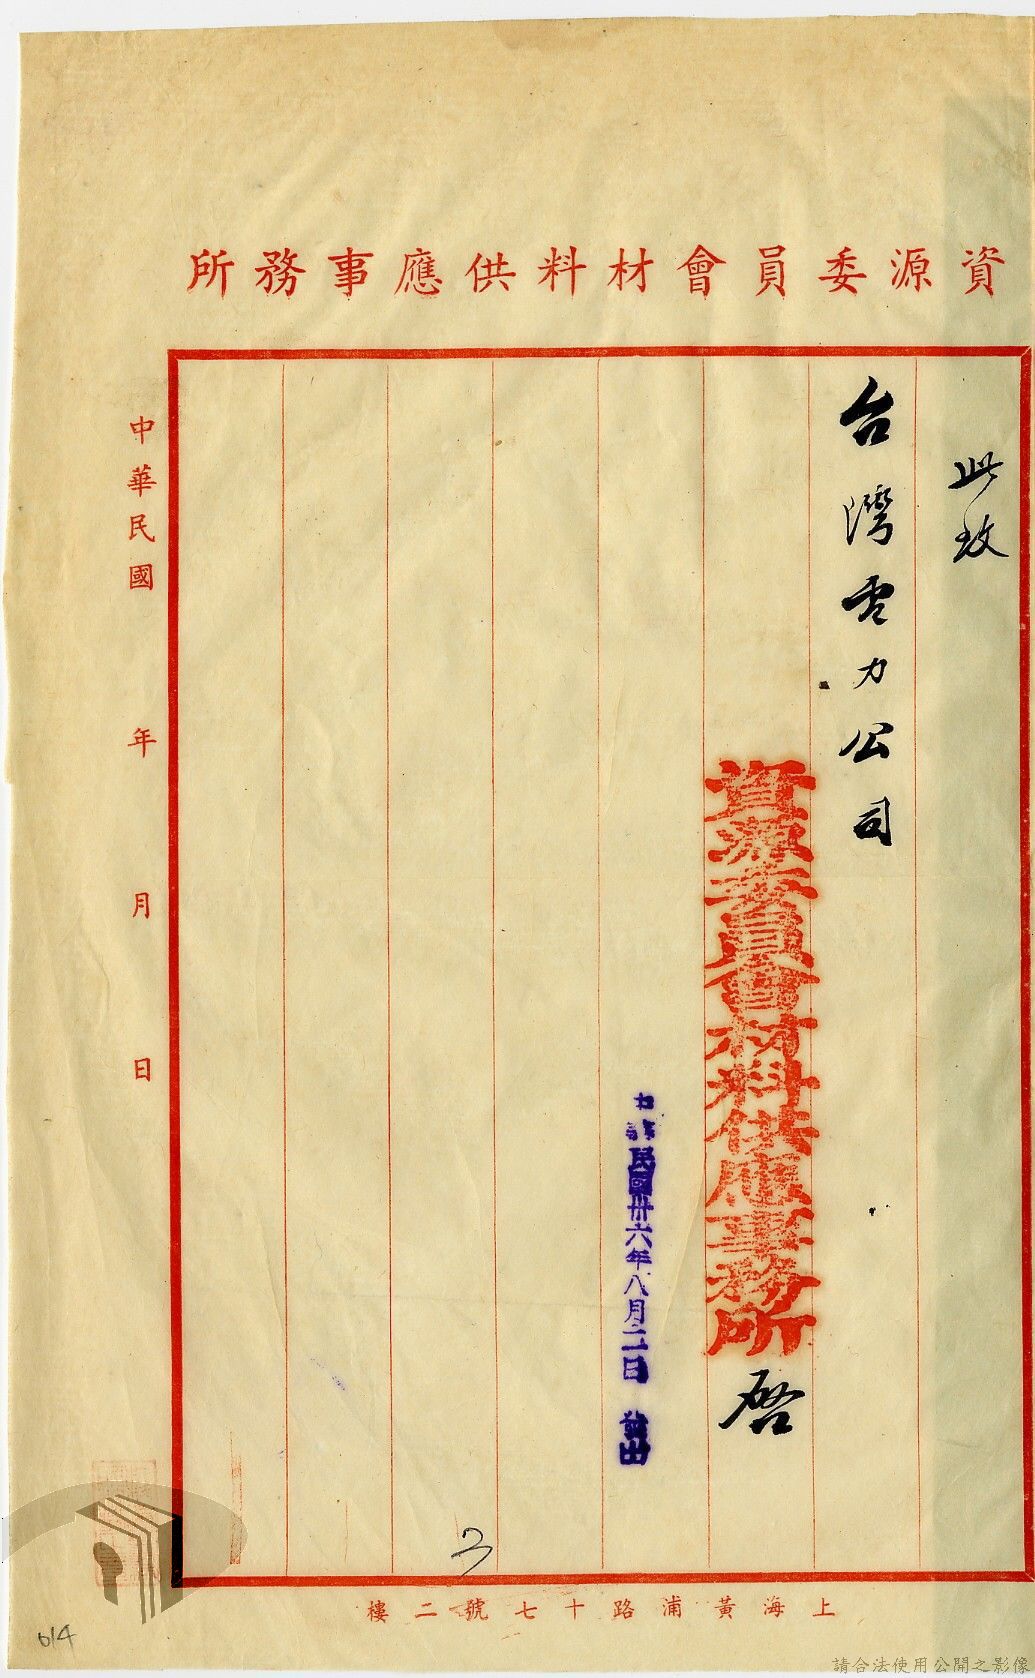 資源委員會材料供應事務所
此致
台灣電力公司
資源委員會材料供應事務所 啓
中華民國卅六年八月二日 發出
中華民國 年 月 日
上海黃浦路十七號二樓
3
614
請合法使用公開之影像